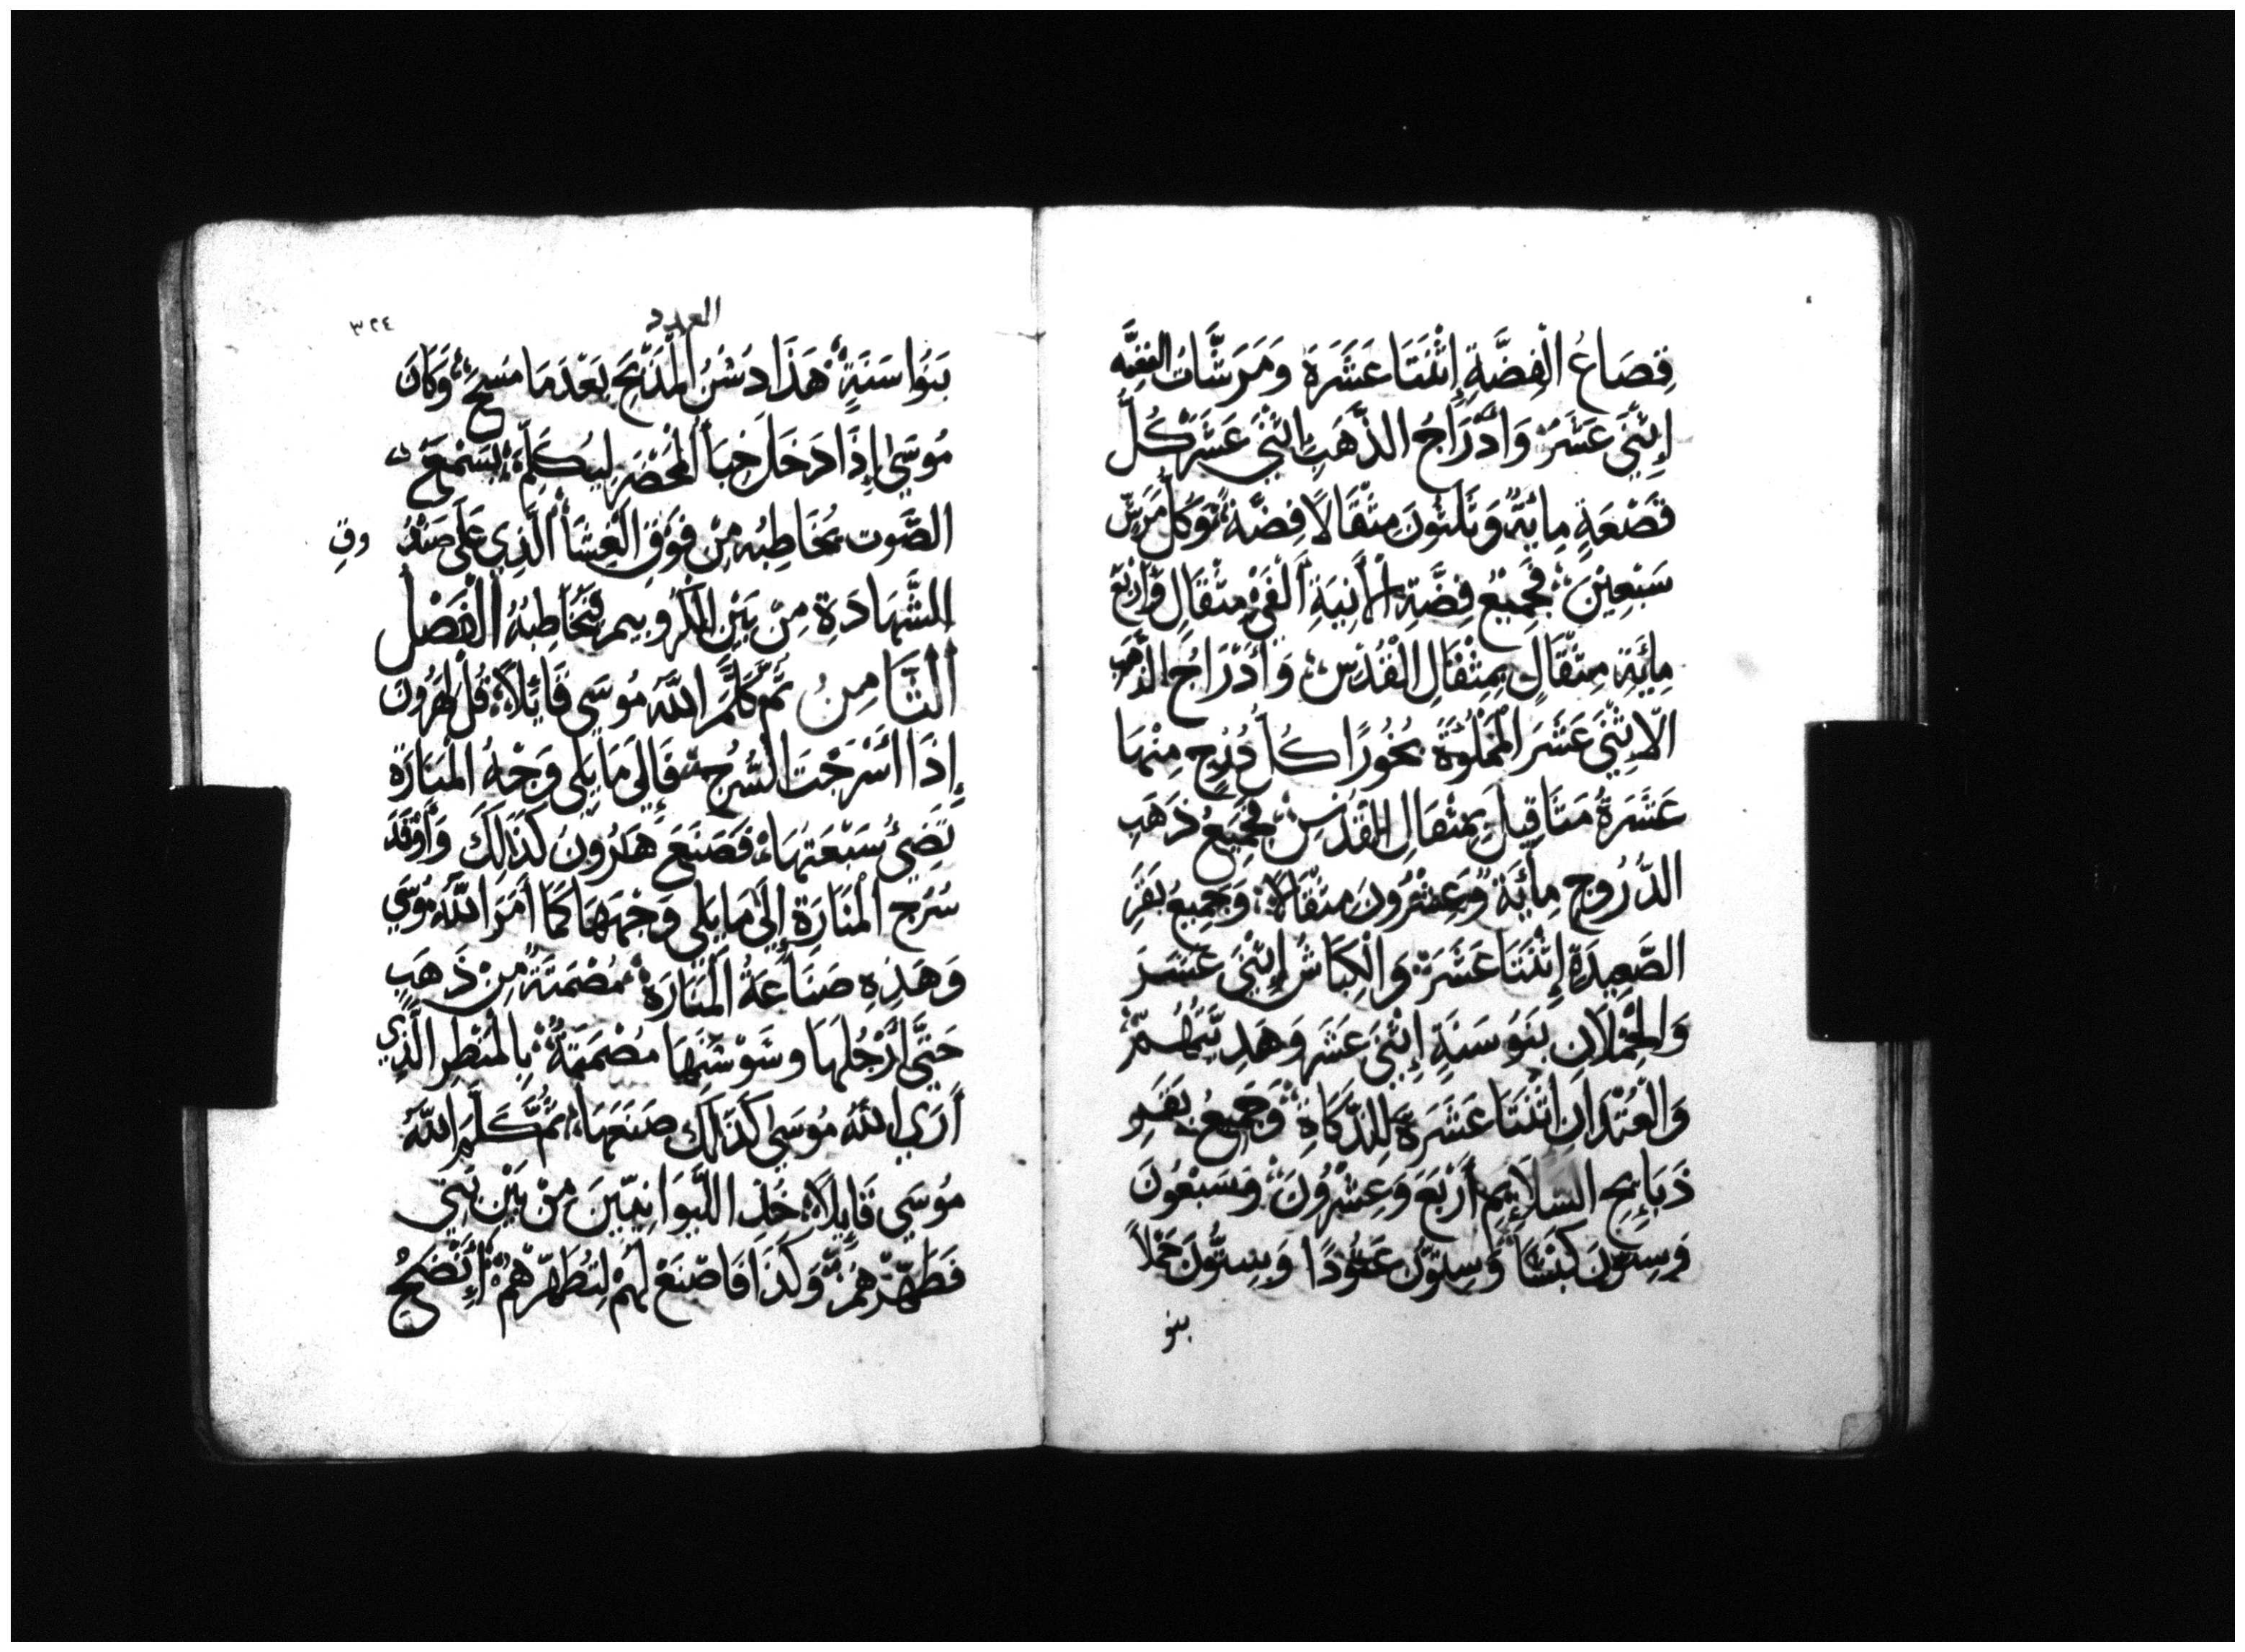 قِصَاعُ الْفِضَّةِ إِثْنَتَا عَشَرَةَ وَمَرَشَّاتُ الفِضَّه
إِثْنَيَ عَشَرَ وَادْرَاجُ الذَّهَبِ اثْنَيْ عَشَرَ كُلُّ
قَصْعَةٍ مِائَةٌ وَثَلثُونَ مِثْقَالاً فِضَّة وَكُلُّ مَرَشٍّ
سَبْعِيْنَ فَجَمِيْعُ فِضَّةِ الْأَنِيَةِ أَلْفَيْ مِثْقَالٍ وَأَرْبَعُ
مِائَةِ مِثْقَالٍ بِمِثْقَالِ الْقُدْسِ وَأَدْرَاجُ الذَّهَبِ
الْاِثْنَيَ عَشَرَ الْمَمْلُوَّةَ بُخُورًا كُلُّ دُرْجٍ مِنْهَا
عَشَرَةُ مَثَاقِيلَ بِمِثْقَالِ الْقُدْسِ فَجَمِيعُ ذَهَبِ
الدُّرُوجِ مِائَةٌ وَعِشْرُونَ مِثْقَالاً وَجَمِيعُ بَقَرِ
الصَّعِيدَةِ إِثْنَتَا عَشَرَةَ وَالْكِبَاشُ إِثْنَيْ عَشَرَ
وَالْحُمْلَان بَنَوُ سَنَةٍ إِثْنَيَ عَشَرَ وَهَدِيَّتُهُمْ
وَالْعُتْدَانَ اثْنَتَا عَشَرَةَ لِلذَّكَاةِ وَجَمِيعُ بَقَرِ
ذَبَائِحِ السَّلَائِمِ أَرْبَعَ وَعِشْرُونَ وَسَبْعُونَ
وَسِتُّونَ كَبْشًا وَسِتُّونَ عَتُودًا وَسِتُّونَ حَمْلاً
بنو
العدد
٣٢٤
بَنُوا سَنَةٍ هَذَا دَشْنُ الْمَذْبَحِ بَعْدَمَا مُسِحَ وَكَانَ
مُوسَى إِذَا دَخَلَ خِبَأَ الْمَحْضَرِ لِيُكَلِّمَهُ يَسْمَعُ
الصَّوت يُخَاطِبُه مِنْ فَوْقِ الْغِشَأ الَّذِي عَلَى صَنْدُوقِ
الشَّهَادَةِ مِنْ بَيْنِ الْكَرُوبِيمِ فَيُخَاطِبُهُ الْفَصْلُ
الْثَامِنُ ثُمَّ كَلَّمَ اللَّهُ مُوسَى قَائِلاً قُلْ لِهَرُونَ
إِذَا أَسْرَجْتَ السُّرُجَ فَإِلَى مَا يَلِي وَجْهُ الْمَنَارَةِ
تُضِيُ سَبْعَتُهَا فَصَنَعَ هَارُونُ كَذَلِكَ وَأَوْقَدَ
سُرُجِ الْمَنَارَةِ إِلَى مَا يَلِي وَجْهَهَا كَمَا أَمَرَ اللَّهُ مُوسَى
وَهَذِهِ صَنَاعَةُ الْمَنَارَةِ مُصْمَتَةٌ مِنْ ذَهَبٍ
حَتَّى أَرْجُلَهَا وَسَوْسَنِهَا مُصْمَتَةٌ بِالْمَنْظَرِ الَّذِي
أَرَي اللَّهُ مُوسَي كَذَلِكَ صَنَعَهَا ثُمَّ كَلَّمَ اللَّهُ
مُوسَي قَايِلاً خُذِ اللَّيوَانِيِّينَ مِنْ بَيْنِ بَنِي
فَطَهِّرْهُمْ وَكَذَا فَاصْنَعْ لَهُمْ لِتُطَهِّرَهُمْ إِنْضَحُ